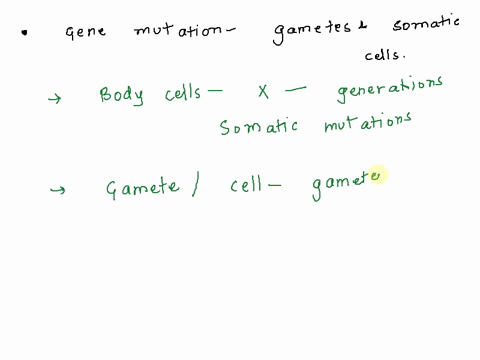 • Gene mutation - gametes & somatic
cells.
→ Body cells - x - generations
Somatic mutations
→ Gamete / cell - gamete